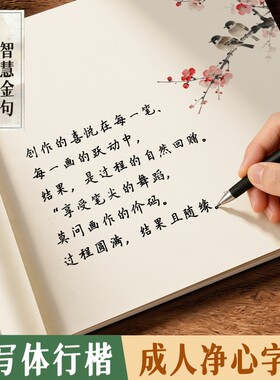 智慧金句
创作的喜悦在每一笔、
每一画的跃动中,
结果,是过程的自然回赠。
“享受笔尖的舞蹈,
莫问画作的价码。
过程圆满,结果且随缘。
写体行楷
成人净心字